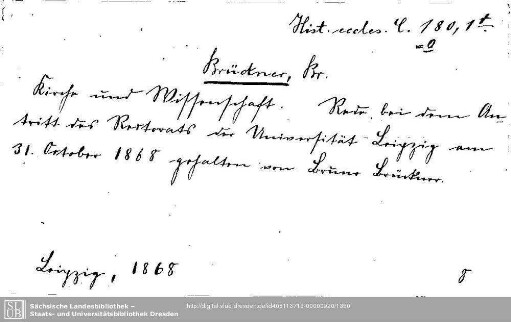 Hist. eccles. C. 180, 1t.
Brückner, Br.
Kirche und Wissenschaft. Rede bei dem An-
tritt des Rectorats der Universität Leipzig am
31. October 1868 gehalten von Bruno Brückner.
Leipzig, 1868
8
Sächsische Landesbibliothek –
Staats- und Universitätsbibliothek Dresden